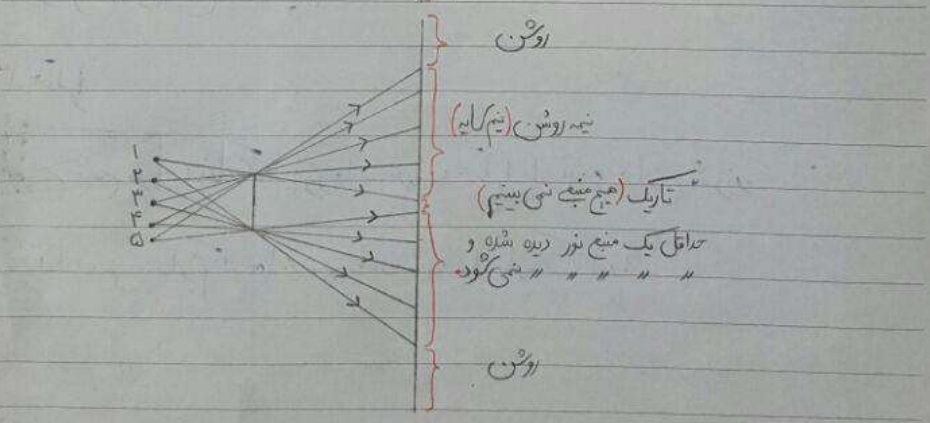 روشن
نیمه روشن (نیم سایه)
تاریک (هیچ منبعی نمی بینیم)
حداقل یک منبع نور دیده شده و
〃 〃 〃 〃 〃 نمی شود.
روشن
۱
۲
۳
۴
۵